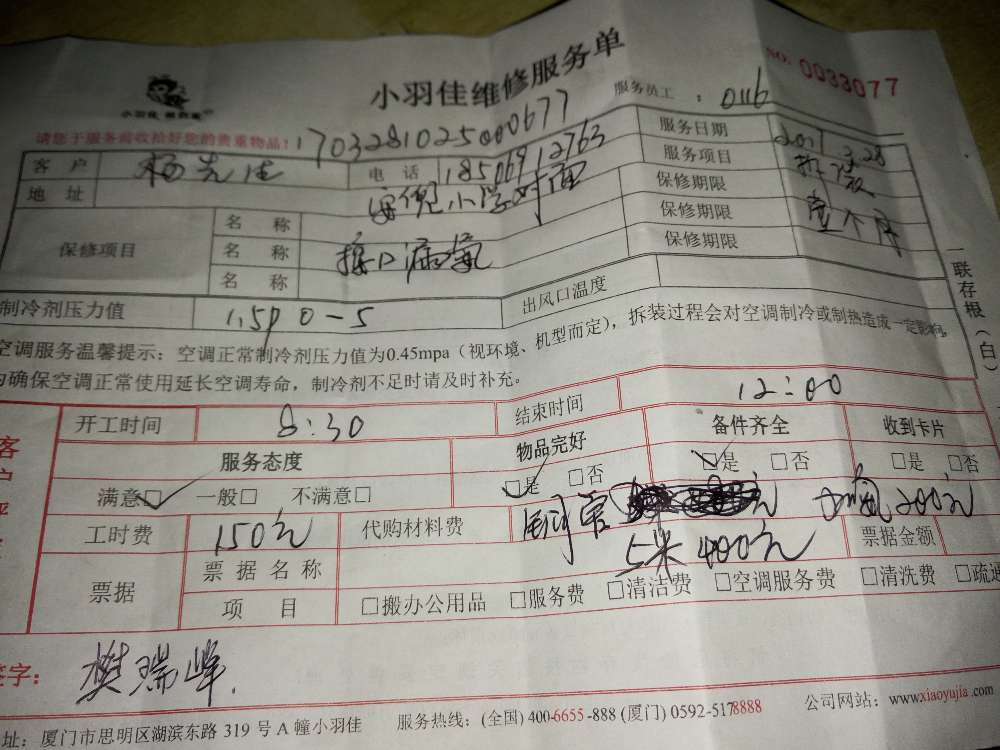 小羽佳维修服务单
NO. 0033077
小羽佳
服务员工：0116
请您于服务前收拾好您的贵重物品！ 1703281025000677
客户 杨先生 电话 18506912763 服务日期 2017.3.28
地址 小学对面 服务项目
保修项目 名称 保修期限
名称 接口漏氟 保修期限 壹个月
名称 保修期限
制冷剂压力值 1.5P 0-5 出风口温度
空调服务温馨提示：空调正常制冷剂压力值为0.45mpa（视环境、机型而定），拆装过程会对空调制冷或制热造成一定影响，
为确保空调正常使用延长空调寿命，制冷剂不足时请及时补充。
一联存根（白）
开工时间 8:30 结束时间 12:00
服务态度 物品完好 备件齐全 收到卡片
满意□ 一般□ 不满意□ □是 □否 □是 □否 □是 □否
工时费 150元 代购材料费 铜管 200元
5米 400元
票据 票据名称 票据金额
项目 □搬办公用品 □服务费 □清洁费 □空调服务费 □清洗费 □疏通
签字： 樊瑞峰.
址：厦门市思明区湖滨东路 319 号 A 幢小羽佳 服务热线：(全国) 400-6655-888 (厦门) 0592-5178888 公司网站：www.xiaoyujia.com